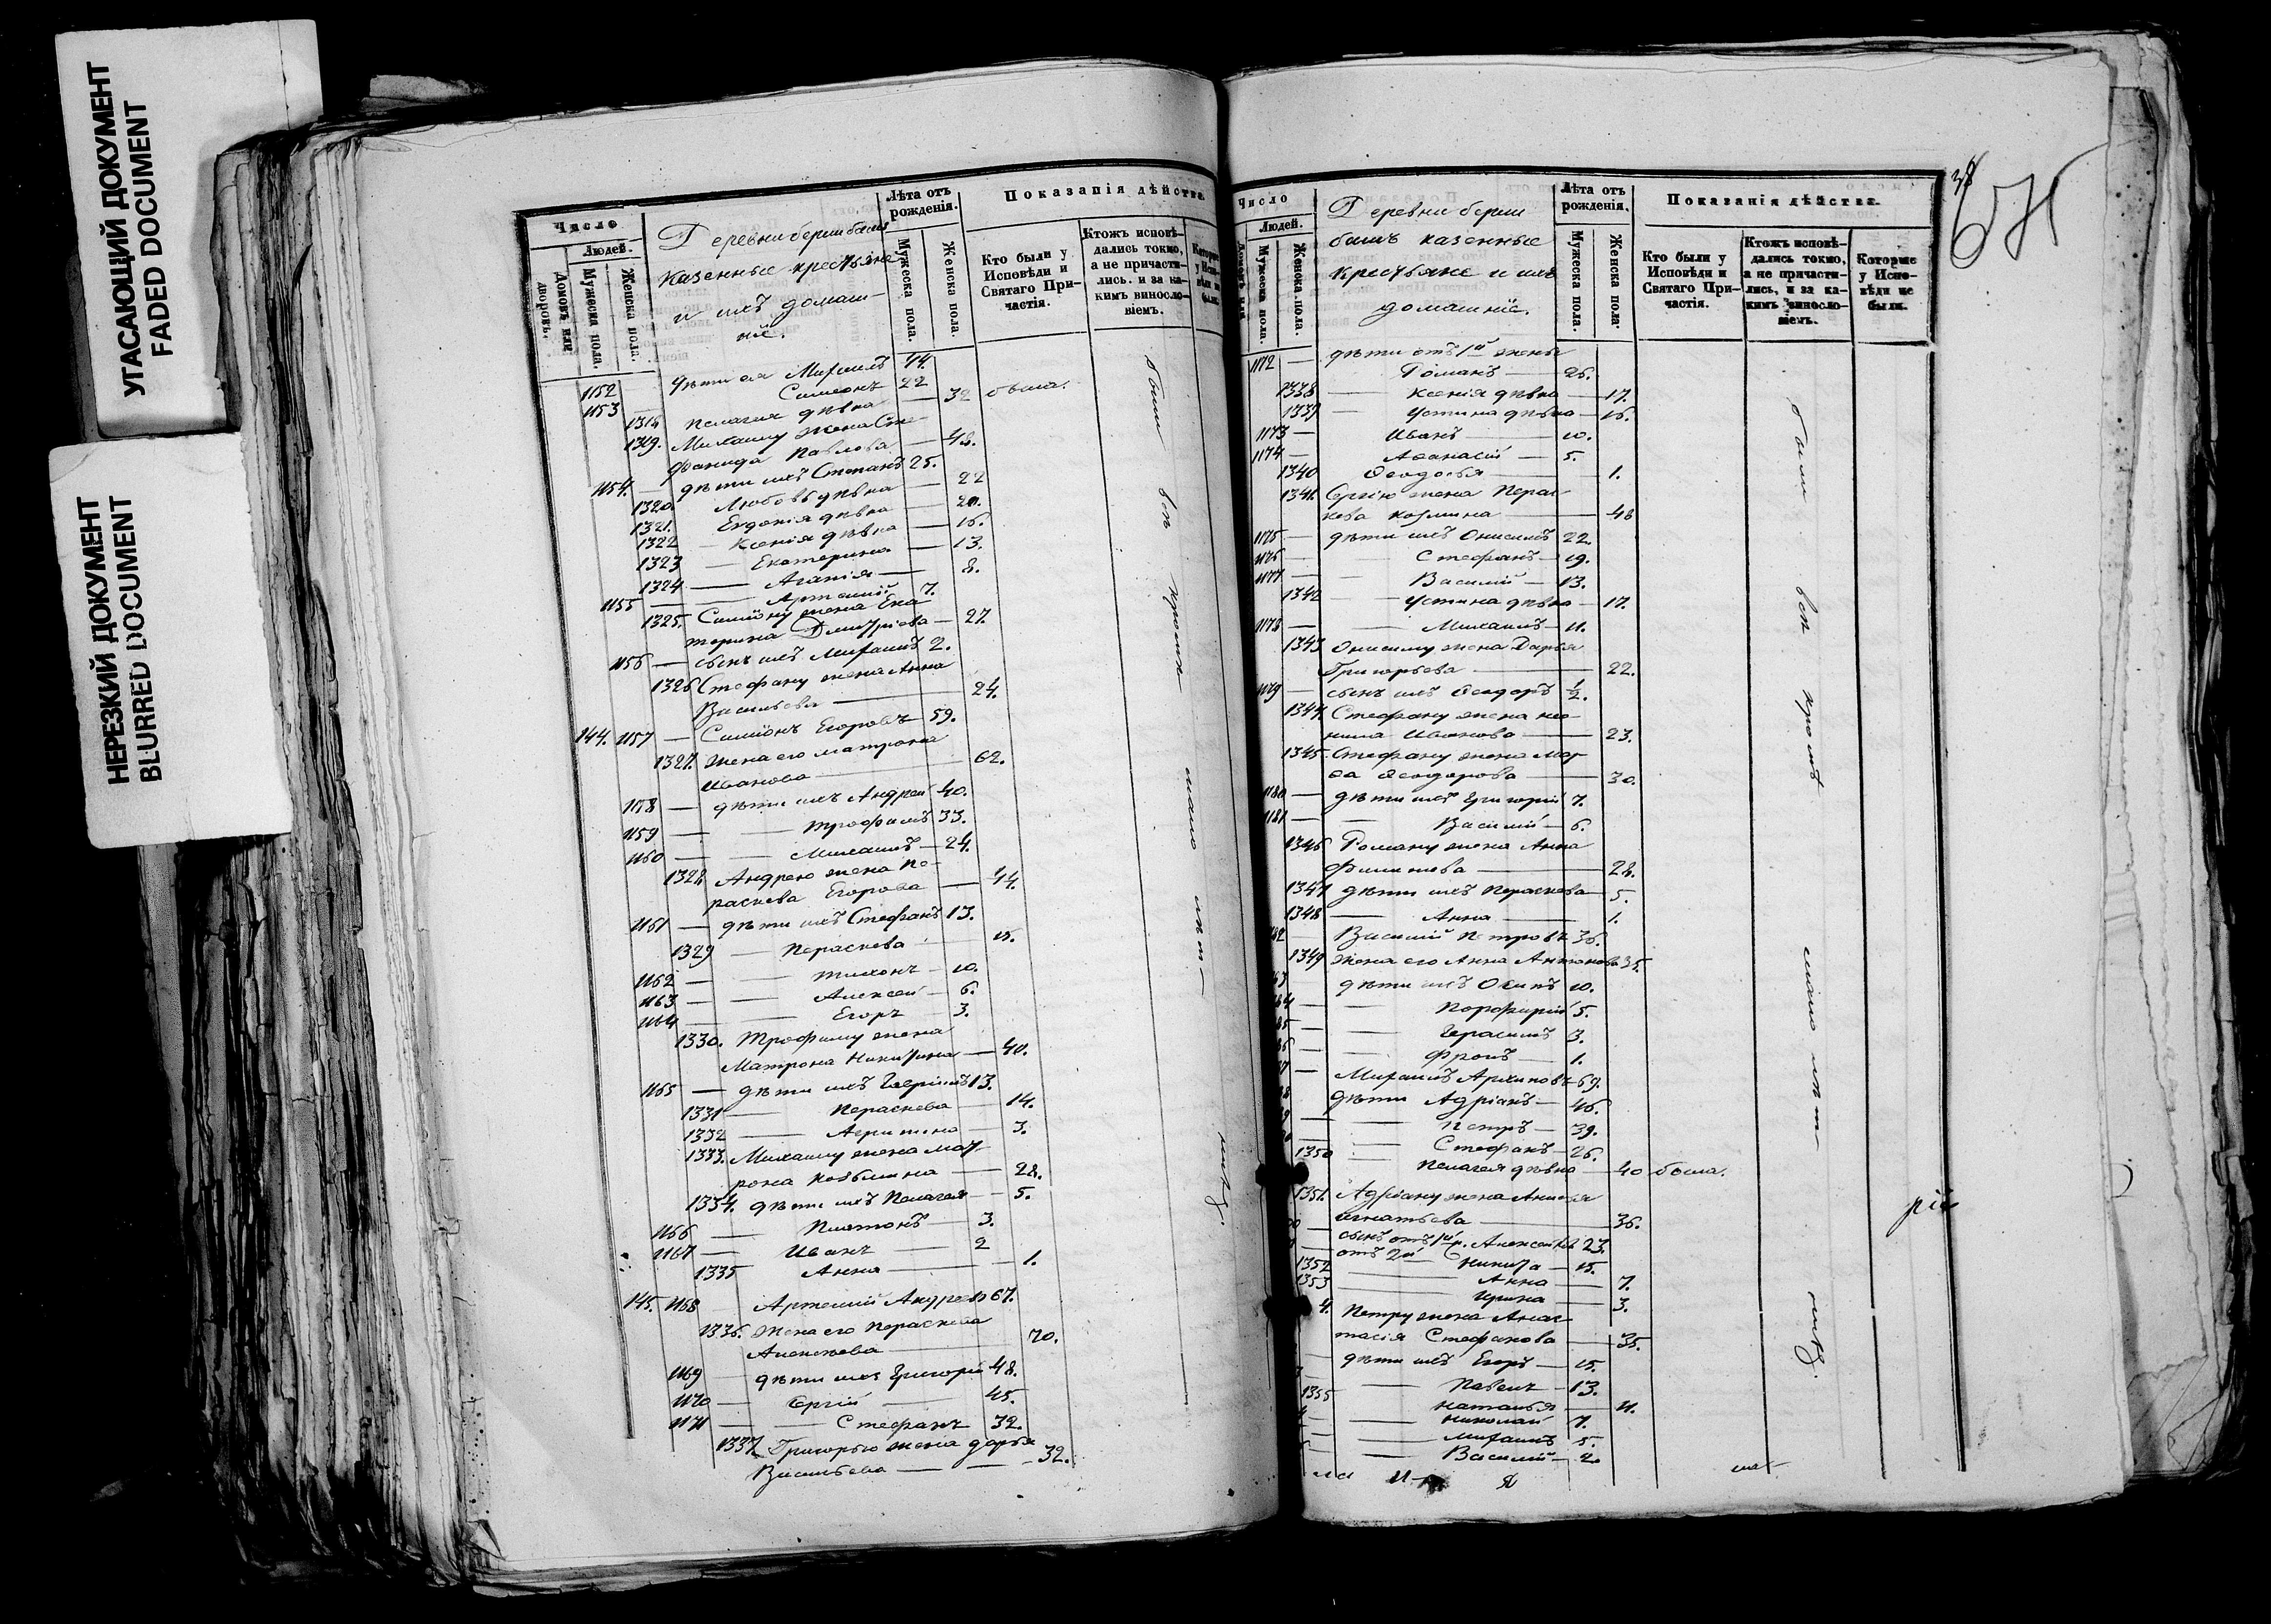 УГАСАЮЩИЙ ДОКУМЕНТ
FADED DOCUMENT
НЕРЕЗКИЙ ДОКУМЕНТ
BLURRED DOCUMENT
Число
Людей.
Домовъ или дворовъ.
Мужеска пола.
Женска пола.
Казенные крестьяне
и ихъ домаш-
ніе.
Лѣта отъ
рожденія.
Мужеска пола.
Женска пола.
Показанія дѣйства
Кто были у
Исповѣди и
Святаго При-
частія.
Ктожъ исповѣ-
дались токмо,
а не причасти-
лись. и за ка-
кимъ винсло-
віемъ.
1152 дѣти ея Михаилъ 44.
1153 Симеонъ 22
Пелагея дѣвка 32 была.
1319. Михаилу жена Сте-
фанида Павлова 48.
1154. дѣти ихъ Степанъ 25.
1320 Любовь дѣвка 22
1321. Евдокія дѣвка 20.
1322 Ксенія дѣвка 16.
1323 Екатерина 13.
1324 Агапія 8.
1155 Артемій 7.
1325. Симіону жена Ека
терина Дмитріева 27.
1156 сынъ ихъ Михаилъ 2.
1326 Стефану жена Анна
Васильева 24.
144. 1157 Симіонъ Егоровъ 59.
1327. жена его Матрона
Иванова 62.
1158 дѣти ихъ Андрей 40.
1159 Трофимъ 33.
1160 Михаилъ 24.
1328 Андрею жена Пе-
раскева Егорова 44.
1161 дѣти ихъ Стефанъ 13.
1329 Пераскева 15.
1162 Тихонъ 10.
1163 Алексей 6.
1164 Егоръ 3.
1330. Трофиму жена
Матрона Никитина 40.
1165 дѣти ихъ 13.
1331 Пераскева 14.
1332 3.
1333. Михаилу жена Мат
рона Козьмина 28.
1334. дѣти ихъ Пелагея 5.
1166 Платонъ 3.
1167 Иванъ 2
1335 Анна 1.
145. 1168 Артемій Андреевъ 67.
1336. жена его Пераскева
Алексеева 70.
1169 дѣти ихъ Григорій 48.
1170 Сергій 45.
1171 Стефанъ 32.
1337. Григорью жена Дарья
Васильева 32.
были вси кромѣ мало лѣт-
Число
Людей.
Мужеска пола
Женска пола.
башъ казенные
крестьяне и ихъ
домашніе.
Лѣта отъ
рожденія.
Мужеска пола.
Женска пола.
Показанія дѣйства.
Кто были у
Исповѣди и
Святаго При-
частія.
Ктожъ исповѣ-
дались токмо,
а не причасти-
лись, и за ка-
кимъ винсло-
віемъ.
Которые
у Испо-
вѣди не
были.
1172 дѣти отъ 1й жены
Романъ 26.
1338 Ксенія дѣвка 17.
1339 Устина дѣвка 16.
1173 Иванъ 10.
1174 Афанасій 5.
1340 Феодосья 1.
1341 Сергію жена Перас-
кева Козмина 48
1175 дѣти ихъ Онисимъ 22.
1176 Стефанъ 19.
1177 Василій 13.
1342 Устина дѣвка 17.
1178 Михаилъ 11.
1343 Онисиму жена Дарья
Григорьева 22.
1179 сынъ ихъ Феодоръ ½.
1344. Стефану жена
Иванова 23.
1345. Стефану жена Мар
фа Феодорова 30.
1180 дѣти ихъ Григорій 7.
1181 Василій 6.
1346 Роману жена Анна
Филипова 28.
1347 дѣти ихъ Пераскева 5.
1348 Анна 1.
Василій Петровъ 36.
1349 жена его Анна Антонова 35.
дѣти ихъ Осипъ 10.
Порфирій 5.
Герасимъ 3.
Фролъ 1.
Михаилъ Архиповъ 69.
дѣти Адріанъ 46.
Петръ 39.
Стефанъ 26.
1350 Пелагея дѣвка 40 была.
1351. Адріану жена Анисья
Игнатьева 36.
сынъ отъ 1й Алексей 23.
отъ 2й Никита 15.
1352 Анна 7.
1353 Ирина 3.
Петру жена Анас
тасія Стефанова 35.
дѣти ихъ Егоръ 15.
Павелъ 13.
1355 Наталья 11.
Николай 7.
Михаилъ 5.
Василій 2
были вси кромѣ мало лѣт-